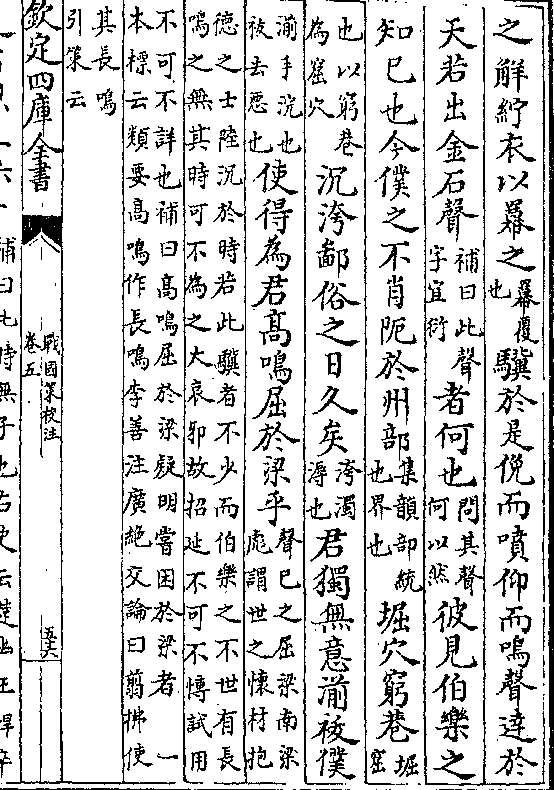 之解紵衣以羃之羃覆也驥於是俛而噴仰而鳴聲達於
天若出金石聲補曰此聲字宜衍者何也問其聲何以然彼見伯樂之
知已也今僕之不肖阨於州部集韻部統也界也堀穴窮巷堀窟
也以窮巷為窟穴沉洿鄙俗之日久矣洿濁溽也君獨無意湔祓僕
湔手浣也祓去惡也使得為君髙鳴屈於梁乎聲已之屈梁南梁彪謂世之懷材抱
德之士陸沉於時若此驥者不少而伯樂之不世有長
鳴之無其時可不為之大哀邪故招延不可不慱試用
不可不詳也補曰髙鳴屈於梁疑明嘗困於梁者一
本標云類要髙鳴作長鳴李善注廣絶交論曰翦拂使
其長鳴
引策云
欽定四庫全書
戰國策校注
卷五
五六